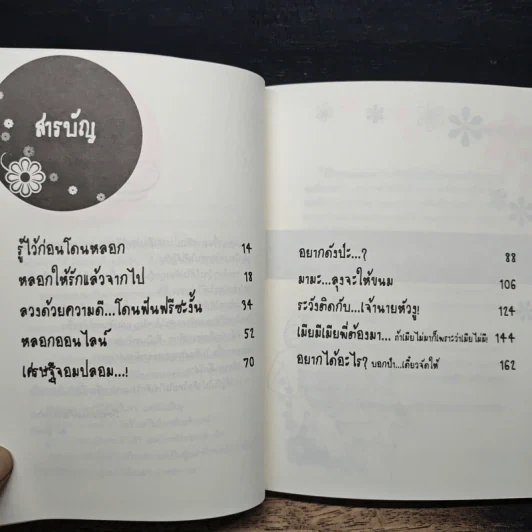 สารบัญ
รู้ไว้ก่อนโดนหลอก 14
หลอกให้รักแล้วจากไป 18
ลวงด้วยความดี...โดนพี่นฟรีซะงั้น 34
หลอกออนไลน์ 52
เศรษฐีจอมปลอม...! 70
อยากดังป่ะ...? 88
มามะ...ลุงจะให้ขนม 106
ระวังติดกับ...เจ้านายหัวงู! 124
เมียมีเมียพี่ต้องมา... ถ้าเมียไม่มาก็เพราะว่าเมียไม่มี! 144
อยากได้อะไร? บอกป๋า...เดี๋ยวจัดให้ 162